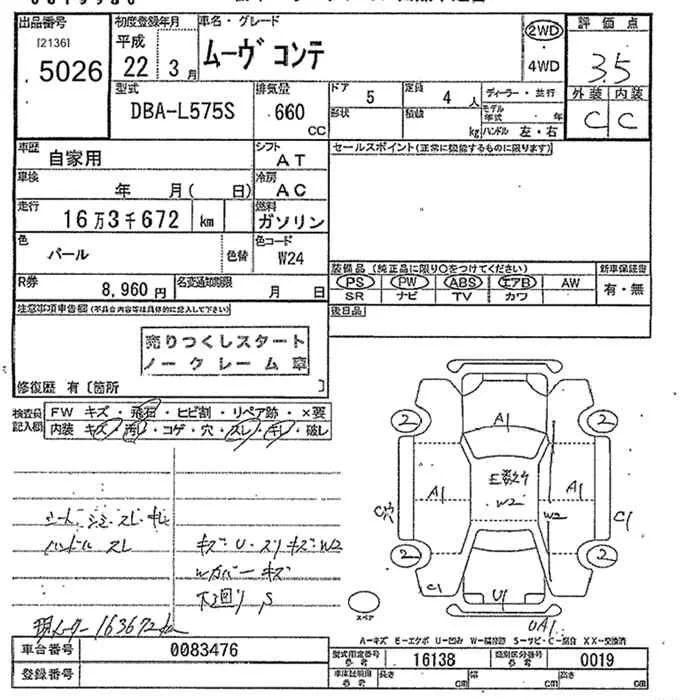 出品番号
[2136]
5026
初度登録年月
平成
22年 3月
車名・グレード
ムーヴ コンテ
2WD
4WD
評価点
3.5
外装 内装
C C
型式
DBA-L575S
排気量
660
CC
ドア 5
定員 4人
形状
積載 kg
ディーラー・並行
モデル年式 年
ハンドル 左・右
車歴
自家用
シフト
AT
セールスポイント(正常に機能するものに限ります)
車検
年 月( 日)
冷房
AC
走行
16万3千672 km
燃料
ガソリン
色
パール
色替
色コード
W24
R券
8,960円
名変通知期限
月 日
装備品(純正品に限り○をつけてください)
PS PW ABS エアB AW
SR ナビ TV カワ
新車保証書
有・無
後日品
注意事項申告欄(不具合内容等は具体的に記入して下さい)
売りつくしスタート
ノークレーム車
修復歴 有〔箇所 〕
検査員記入欄
FW キズ・飛石・ヒビ割・リペア跡・×要
内装 キズ・汚レ・コゲ・穴・スレ・キレ・破レ
シート シミ スレ キレ
ハンドル スレ
キズ・U・スリキズ W2
Wカバー キズ
下廻り S
現メーター 163672km
2 2
A1
E数ケ
W2
A1 A1
C穴
W2
C1
2 2
C1
U1
UA1
スペア
A-キズ E-エクボ U-凹み W-補修跡 S-サビ・C-腐食 XX-交換済
車台番号
0083476
登録番号
型式指定番号
参考
16138
類別区分番号
参考
0019
車庫証明用
参考
長さ cm
幅 cm
高さ cm